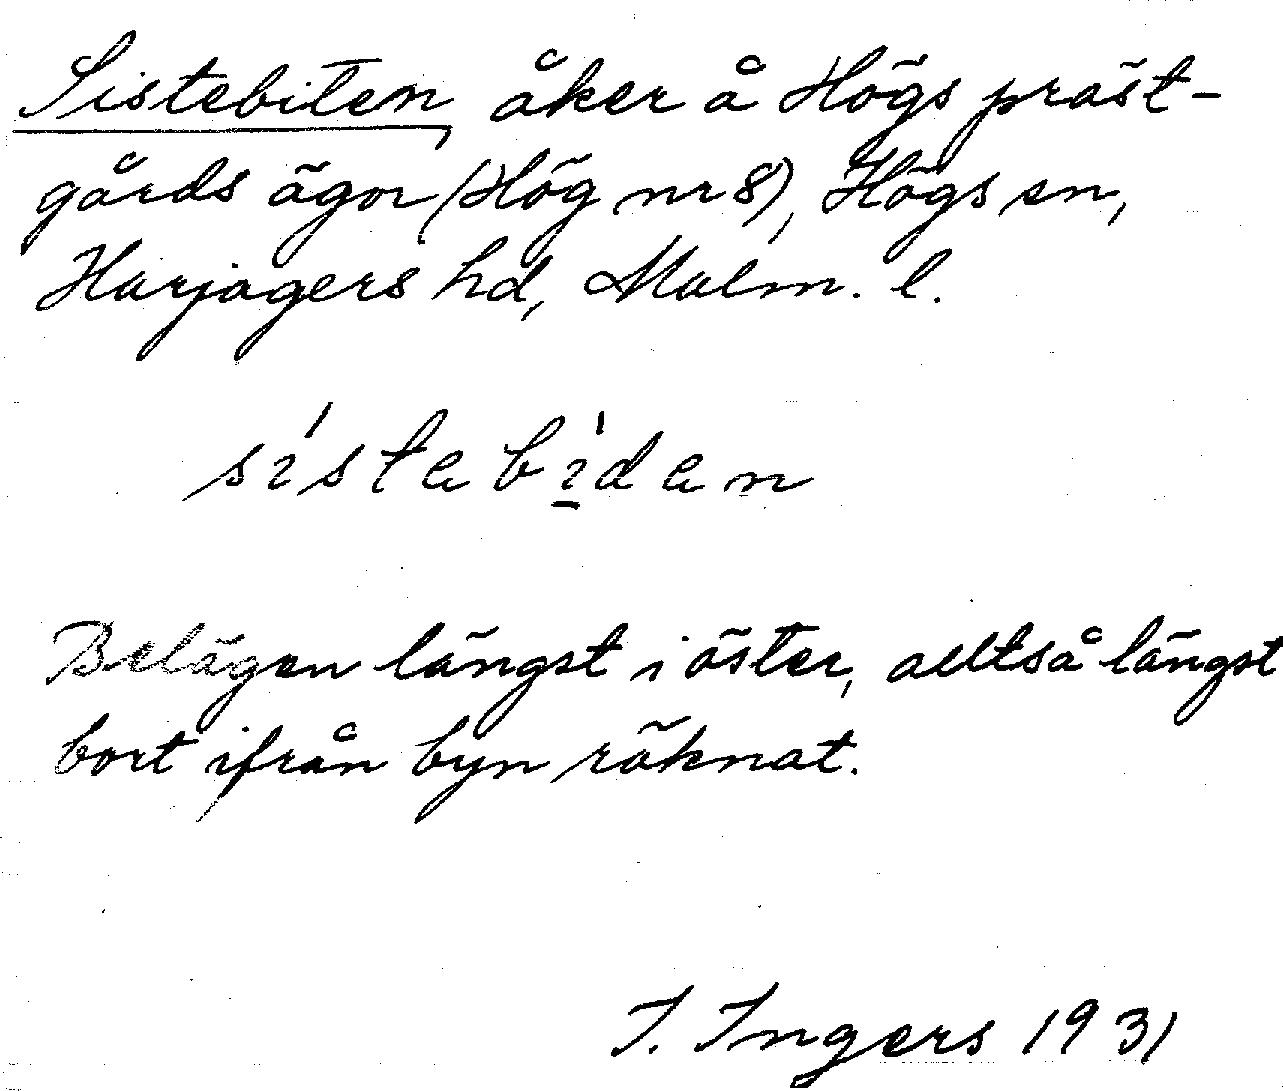 Sistebiten, åker å Högs präst-
gårds ägor (Hög nr 8), Högs sn,
Harjagers hd, Malm. l.
sístabìdan
Belägen längst i öster, alltså längst
bort ifrån byn räknat.
I. Ingers 1931